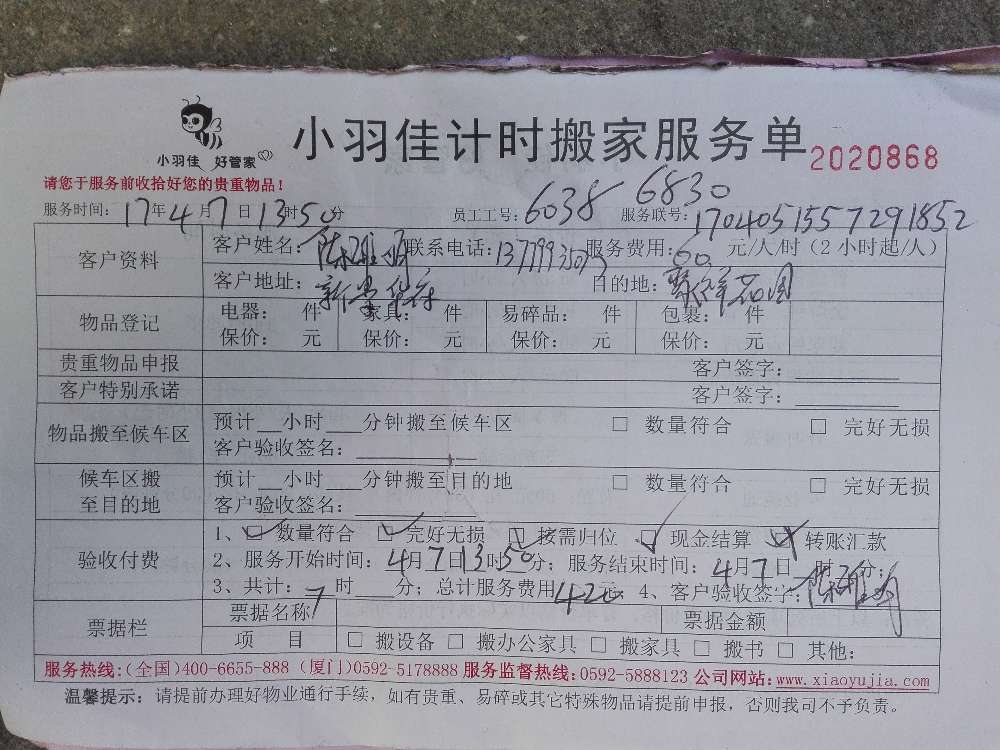 小羽佳 好管家
小羽佳计时搬家服务单 2020868
请您于服务前收拾好您的贵重物品！
6830
服务时间：17年4月7日13时50分 员工工号：6038 服务联号：17040515572918 52
客户资料 客户姓名：陈雅 联系电话：服务费用：60 元/人/时（2小时起/人）
客户地址： 目的地：花园
物品登记 电器： 件 家具： 件 易碎品： 件 包裹： 件
保价： 元 保价： 元 保价： 元 保价： 元
贵重物品申报 客户签字：
客户特别承诺 客户签字：
物品搬至候车区 预计__小时___分钟搬至候车区 □ 数量符合 □ 完好无损
客户验收签名：
候车区搬至目的地 预计__小时___分钟搬至目的地 □ 数量符合 □ 完好无损
客户验收签名：
验收付费 1、☑数量符合 ☑完好无损 ☑按需归位 ☑现金结算 转账汇款
2、服务开始时间：4月7日13时50分；服务结束时间：4月7日__时__分；
3、共计：7时___分；总计服务费用420元 4、客户验收签字：陈雅
票据栏 票据名称 票据金额
项 目 □ 搬设备 □ 搬办公家具 □ 搬家具 □ 搬书 □ 其他：
服务热线：(全国)400-6655-888 (厦门)0592-5178888 服务监督热线：0592-5888123 公司网站：www.xiaoyujia.com
温馨提示：请提前办理好物业通行手续，如有贵重、易碎或其它特殊物品请提前申报，否则我司不予负责。